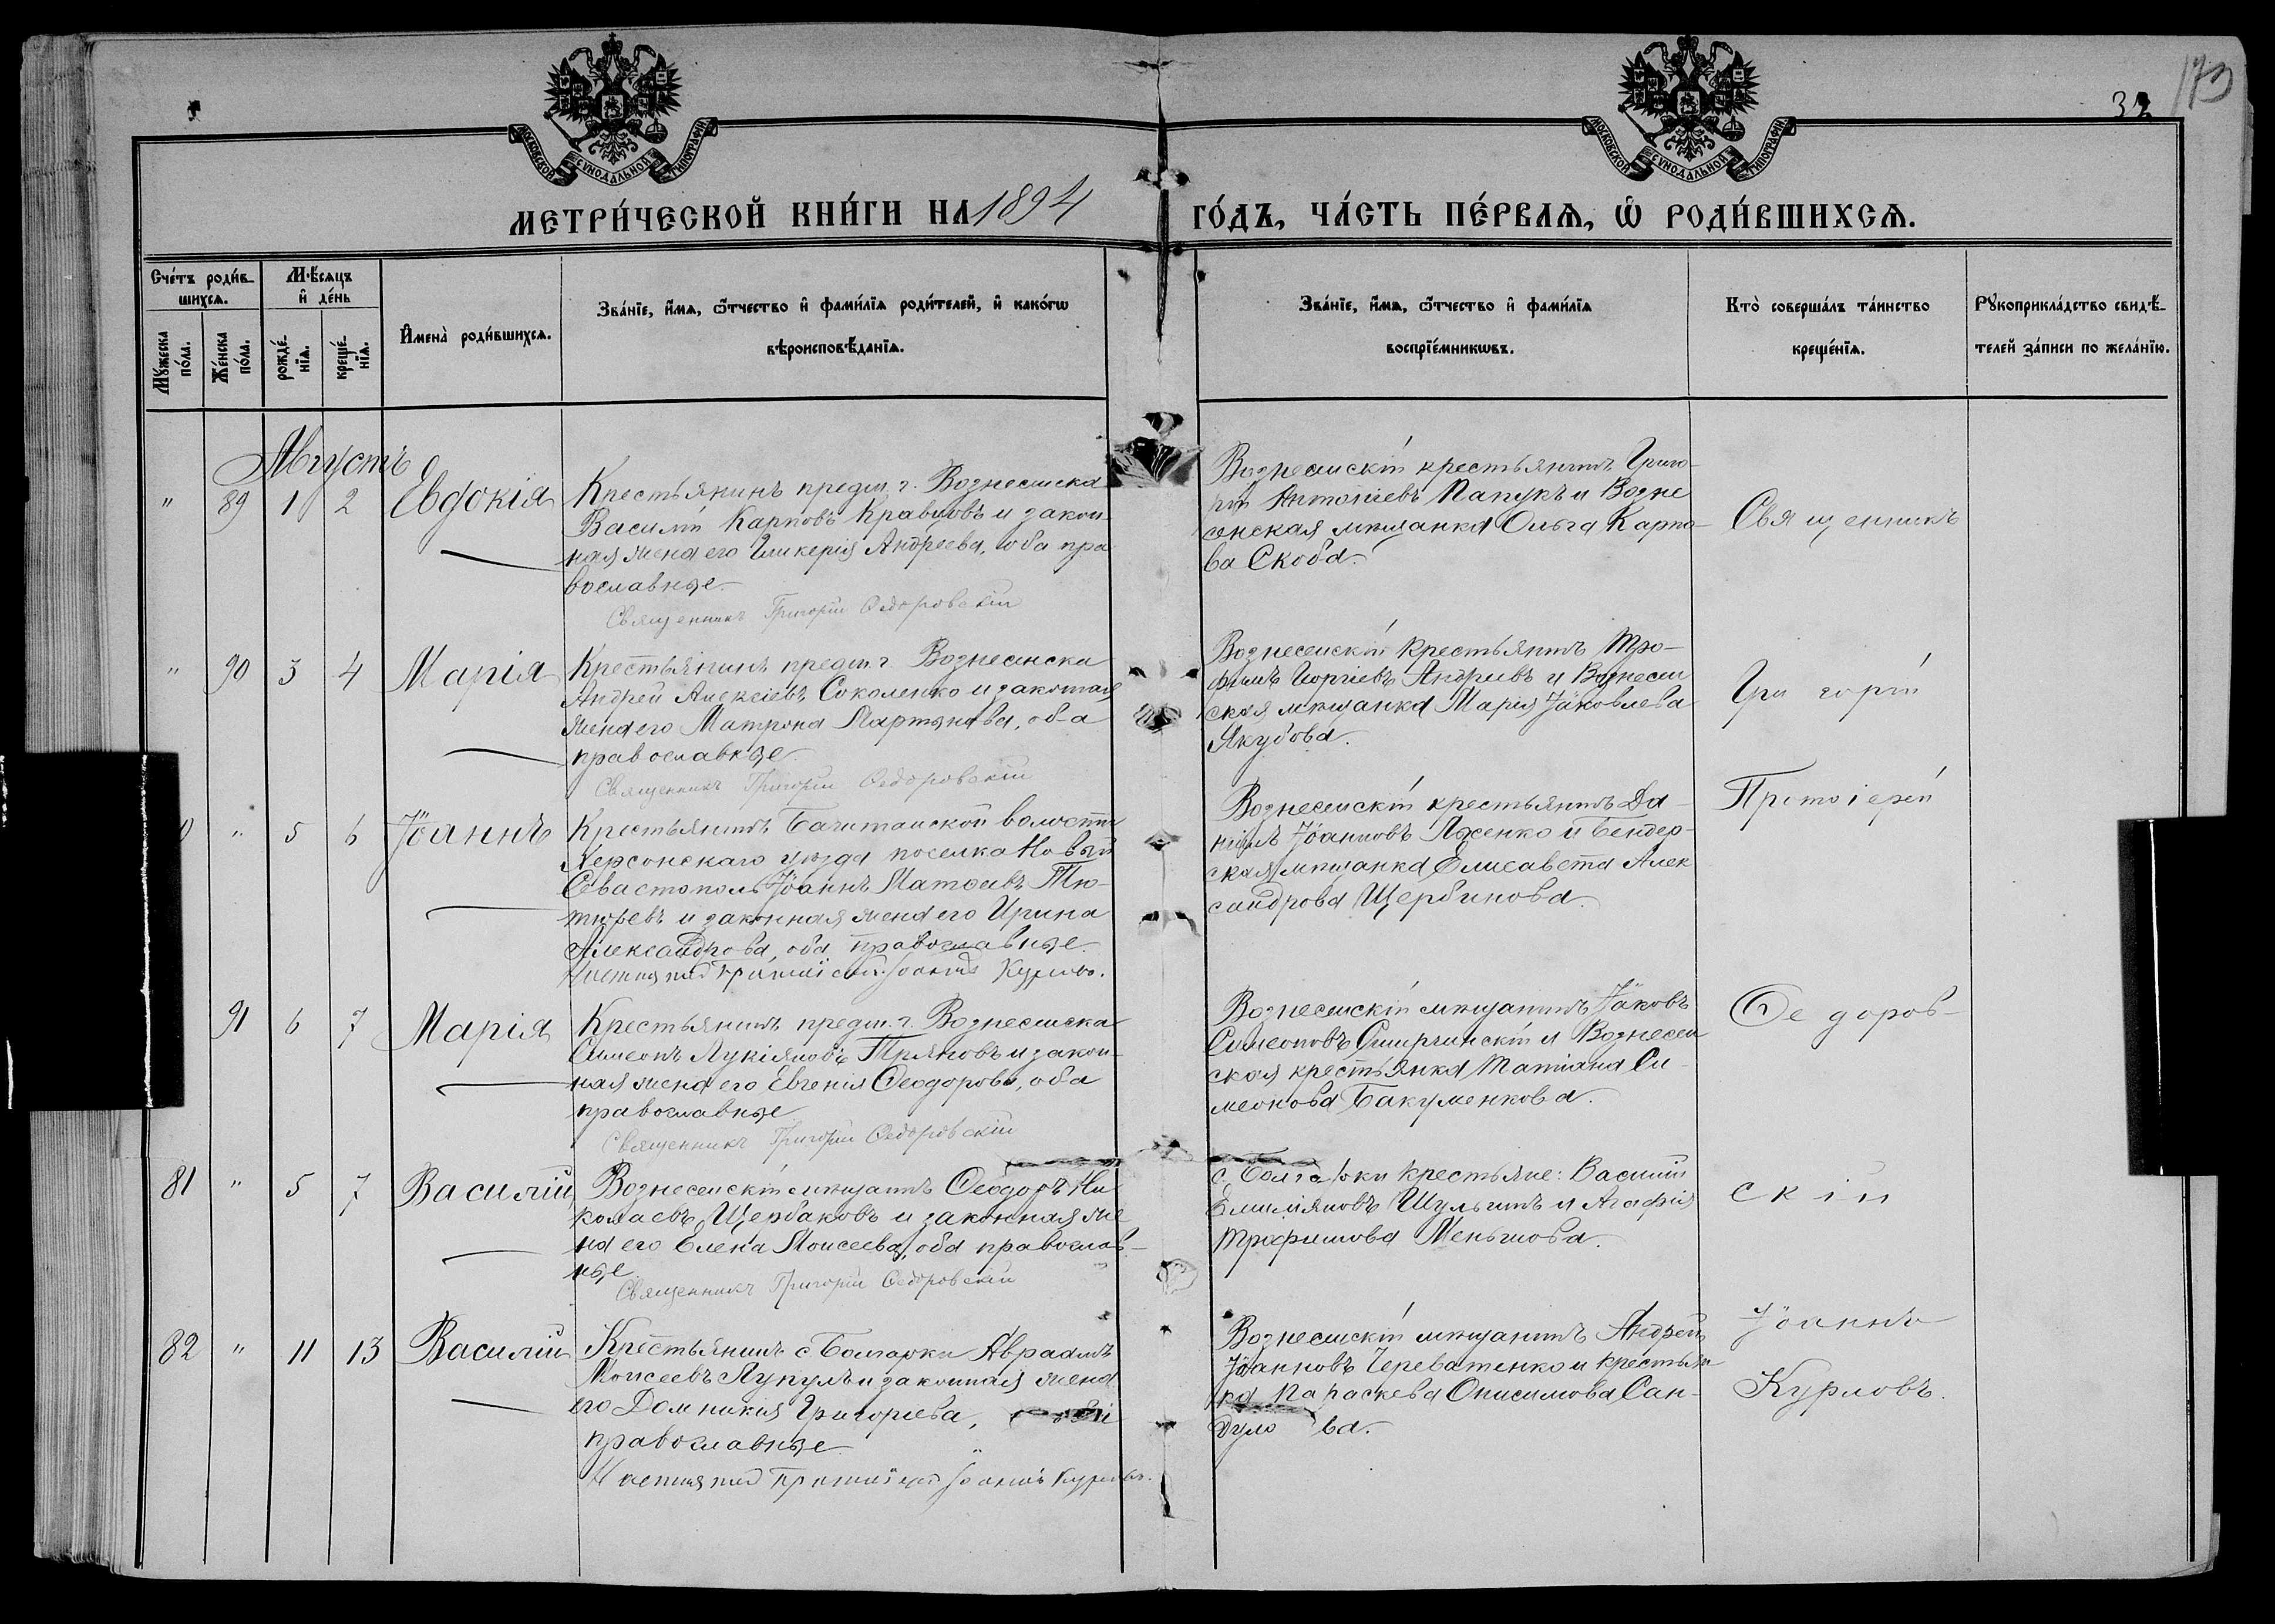 32
173
МОСКОВСКОЙ СѴНОДАЛЬНОЙ ТИПОГРАФІИ
МОСКОВСКОЙ СѴНОДАЛЬНОЙ ТИПОГРАФІИ
МЕТРИ́ЧЕСКОЙ КНИ́ГИ НА 1894 ГО́ДЪ, ЧА́СТЬ ПЕ́РВАѦ, Ѡ҆ РОДИ́ВШИХСѦ.
Счетъ родив-
шихсѧ.
Мѣсѧцъ
и день
Имена родившихсѧ.
Званіе, имѧ, ѿчество и фамиліѧ родителей, и какогѡ
вѣроисповѣданіѧ.
Званіе, имѧ, ѿчество и фамиліѧ
воспріемникѡвъ.
Кто совершалъ таинство
крещеніѧ.
Рꙋкоприкладство свидѣ-
телей записи по желанію.
Мꙋжеска пола.
Женска пола.
рожденіѧ.
крещеніѧ.
Августъ
" 89 1 2 Евдокія
Крестьянинъ предм. г. Вознесенска
Василій Карповъ Кравцовъ и закон-
ная жена его Гликерія Андреева, оба пра
вославные.
Священникъ Григорій Федоровскій
Вознесенскій крестьянинъ Григо-
рій Антоніевъ Папукъ и Возне
сенская мѣщанка Ольга Карпо-
ва Скоба.
Священникъ
" 90 3 4 Марія
Крестьянинъ предм. г. Вознесенска
Андрей Алексіевъ Соколенко и законная
жена его Матрона Мартынова, оба
православные.
Священникъ Григорій Федоровскій
Вознесенскій крестьянинъ Тро-
фимъ Георгіевъ Андреевъ и Вознесен
ская мѣщанка Марія Іаковлева
Якубова.
Григорій
" 5 6 Іоаннъ
Крестьянинъ волости
Херсонскаго уѣзда поселка Новый
Севастополь Іоаннъ Матѳеевъ Тю-
тюревъ и законная жена его Ирина
Александрова, оба православные.
Іоаннъ Курловъ.
Вознесенскій крестьянинъ Да-
ніилъ Іоанновъ Ляженко и Бендер-
ская мѣщанка Елисавета Алек
сандрова Щербинова.
Протоіерей
91 6 7 Марія
Крестьянинъ предм. г. Вознесенска
Симеонъ Лукіяновъ и закон-
ная жена его Евгенія Ѳеодорова, оба
православные
Священникъ Григорій Федоровскій
Вознесенскій мѣщанинъ Іаковъ
Симеоновъ и Вознесен
ская крестьянка Татіана Си-
меонова Бакуменкова.
Ѳедоров-
81 " 5 7 Василій
Вознесенскій мѣщанинъ Ѳеодоръ Ни
колаевъ Щербаковъ и законная же
на его Елена Моисеева, оба православ-
ные
Священникъ Григорій Федоровскій
с. Болгарки крестьяне: Василій
Емиліяновъ Шульгинъ и Агафія
Трофимова Меньшова.
скій
82 " 11 13 Василій
Крестьянинъ с. Болгарки Авраамъ
Моисеевъ Лупулъ и законная жена
его Домникія Григорьева, оба
православные
Іоаннъ Курловъ.
Вознесенскій мѣщанинъ Андрей
Іоанновъ Череватенко и крестьян
ка Параскева Онисимова Сан-
дуло ва.
Іоаннъ
Курловъ.